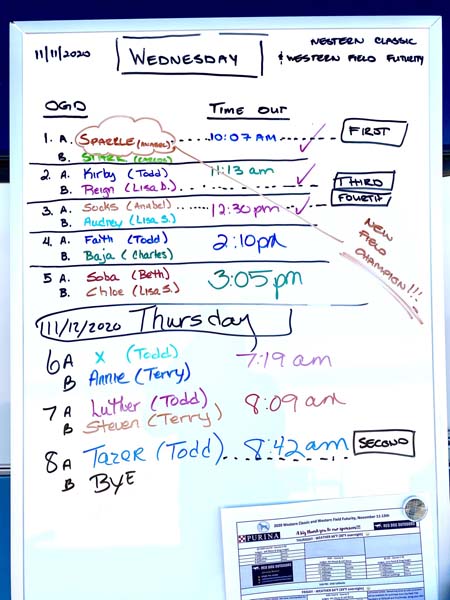 11/11/2020 WEDNESDAY WESTERN CLASSIC
& WESTERN FIELD FUTURITY
OGID TIME OUT
1. A. SPARKLE (ANABEL) 10:07 AM FIRST
B. STARK
2. A. Kirby (Todd) 11:13 am
B. Reign (Lisa D.) THIRD
FOURTH
3. A. Socks (Anabel) 12:30pm
B. Audrey (Lisa S.)
NEW FIELD CHAMPION!!!
4. A. Faith (Todd) 2:10pm
B. Baja (Charles)
5 A. Soba (Beth) 3:05pm
B. Chloe (Lisa S.)
11/12/2020 Thursday
6 A X (Todd) 7:19 am
B Annie (Terry)
7 A Luther (Todd) 8:09 am
B Steven (Terry)
8 A Tazer (Todd) 8:42am SECOND
B BYE
2020 Western Classic and Western Field Futurity, November 11-13th
A big thank you to our sponsors!!!
PURINA RED DOG OUTDOORS